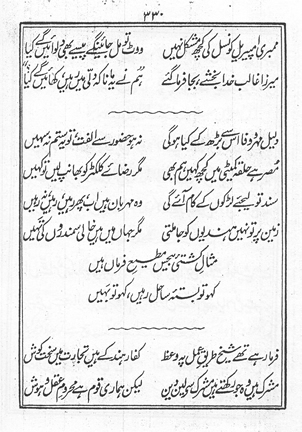 ۳۳۰
ممبری امپیریل کونسل کی کچھ مشکل نہیں ووٹ تو مل جائینگے پیسے بھی دلوائیں گے کیا
میرزا غالب خدا بخشے بجا فرما گئے ہم نے یہ مانا کہ دلی میں رہیں کھائیں گے کیا
دلیل مہر و وفا اس سے بڑھ کے کیا ہوگی نہ ہو حضور سے الفت تو یہ ستم نہ سہیں
مصر ہے حلقہ کمیٹی میں کچھ کہیں ہم بھی مگر رضائے کلکٹر کو بھانپ لیں تو کہیں
سند تو لیجئے لڑکوں کے کام آئے گی وہ مہربان ہیں اب پھر رہیں رہیں نہ رہیں
زمین پر تو نہیں ہندیوں کو جا ملتی مگر جہاں میں ہیں خالی سمندروں کی تہیں
مثال کشتی بے حس مطیع فرماں ہیں
کہو تو بستہ ساحل رہیں، کہو تو بہیں
فرما رہے تھے شیخ طریق عمل پہ وعظ کفار ہند کے ہیں تجارت میں سخت کوش
مشرک ہیں وہ جو رکھتے ہیں مشرک سے لین دین لیکن ہماری قوم ہے محروم عقل و ہوش